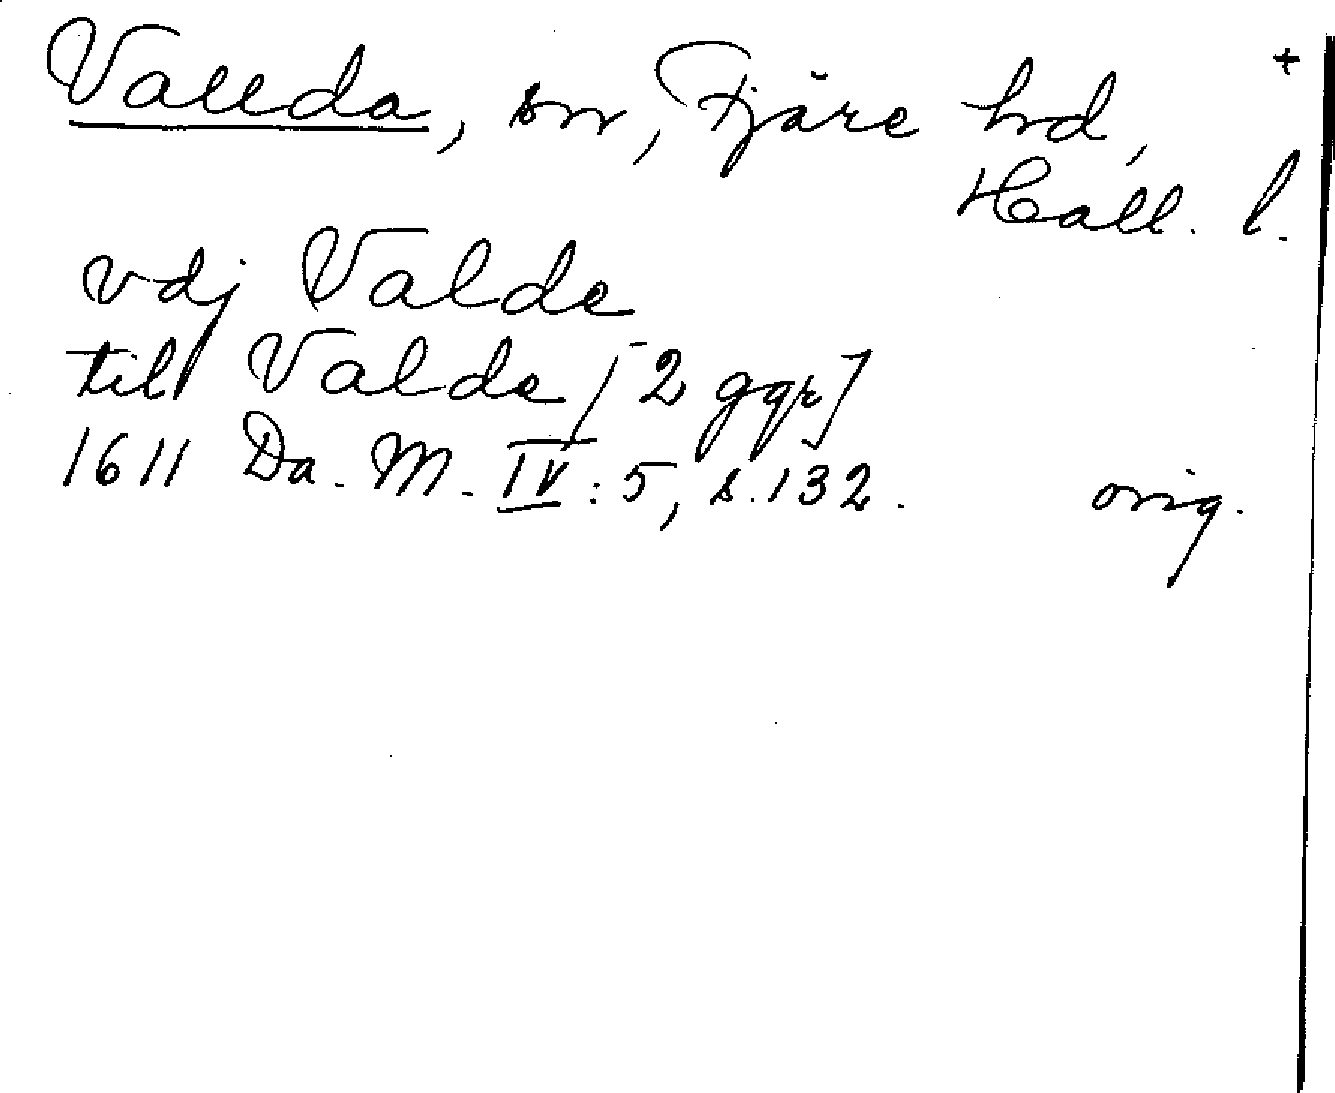 Vallda, sn, Fjäre hd, +
Hall. l.
vdj Valde
till Valde [2 ggr]
1611 Da. M. IV:5, s. 132. orig.